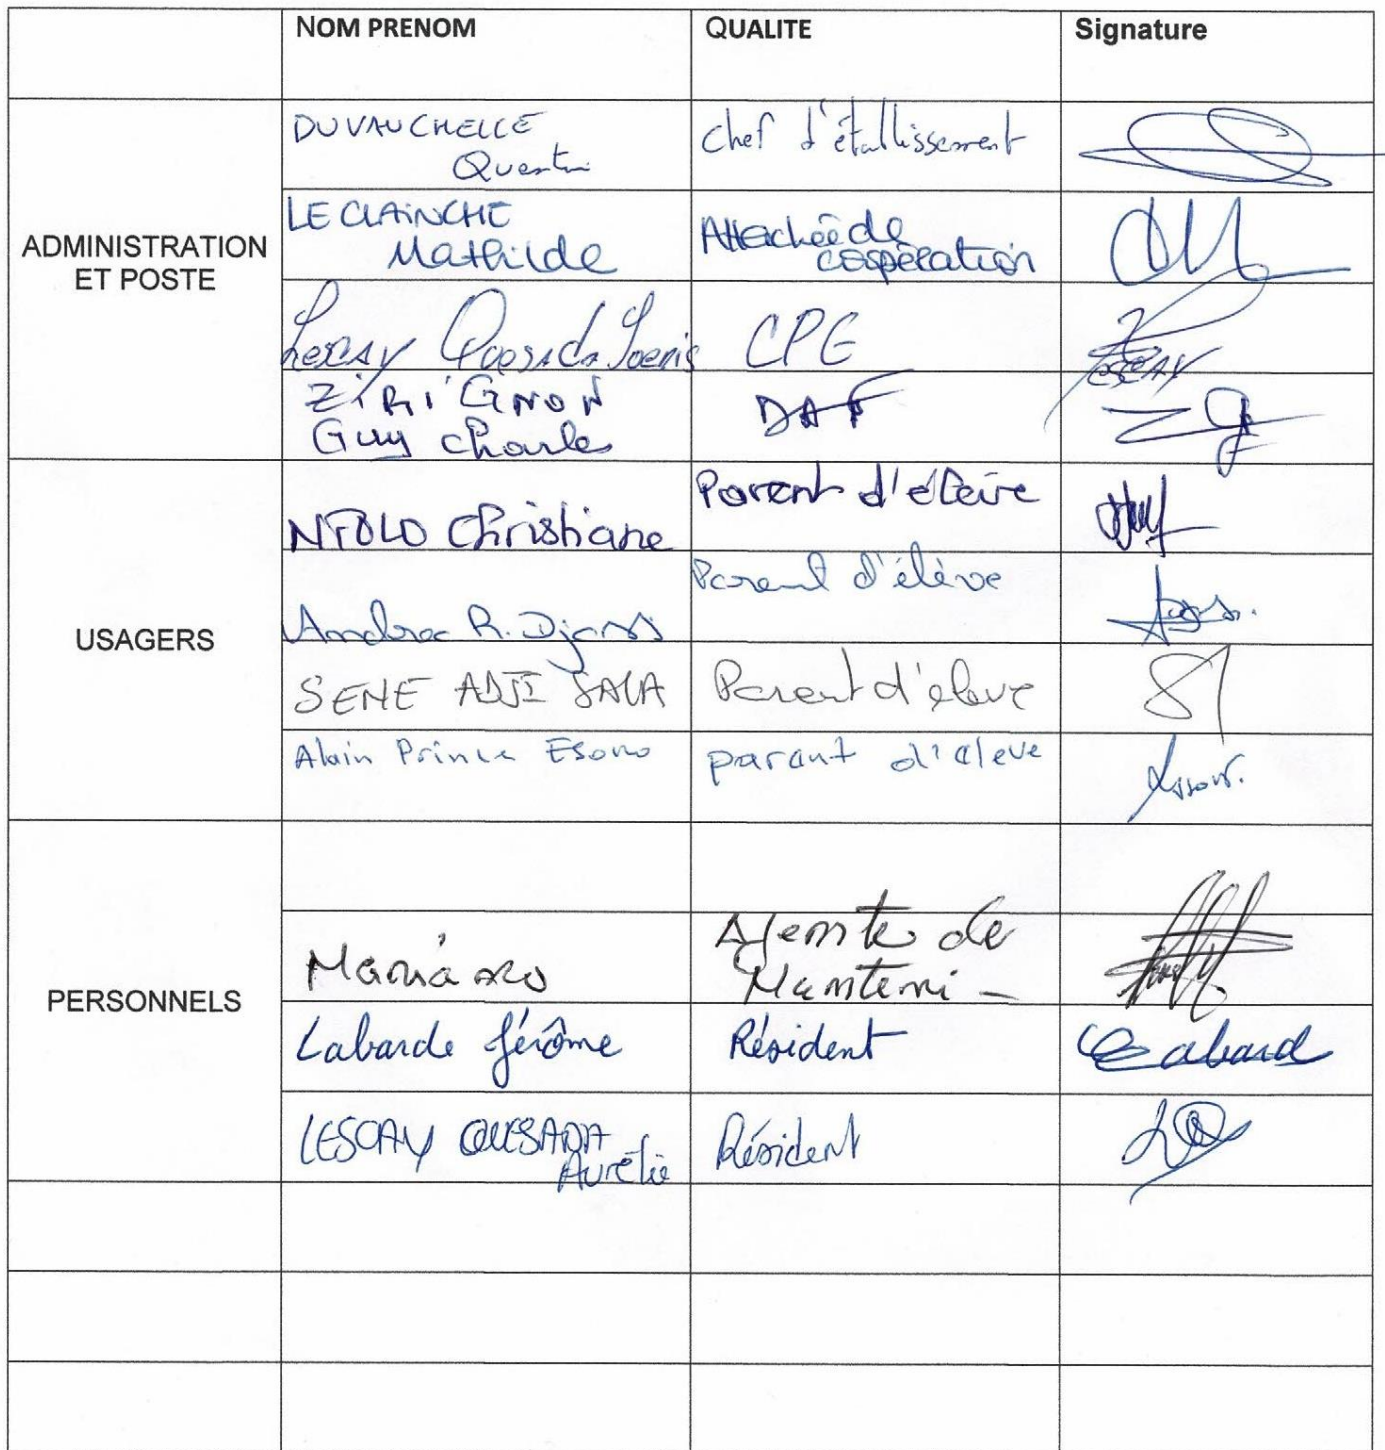 NOM PRENOM QUALITE Signature
ADMINISTRATION
ET POSTE
DUVAUCHELLE
Quentin
chef d'établissement
LE CLAINCHE
Mathilde
Attachée de
coopération
CPE
ZIRIGNON
Guy Charles
DAF
USAGERS
NTOLO Christiane
Parent d'élève
Parent d'élève
SENE ADJI SALA
Parent d'eleve
Alain Prince Esono
parant d'eleve
PERSONNELS
Labarde Jérôme
Résident
Labard
LESCAY QUESADA
Aurélie
Résident